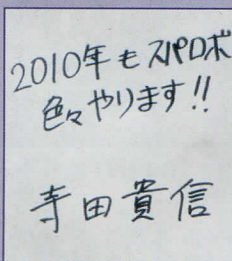 2010年もスパロボ
色々やります!!
寺田貴信